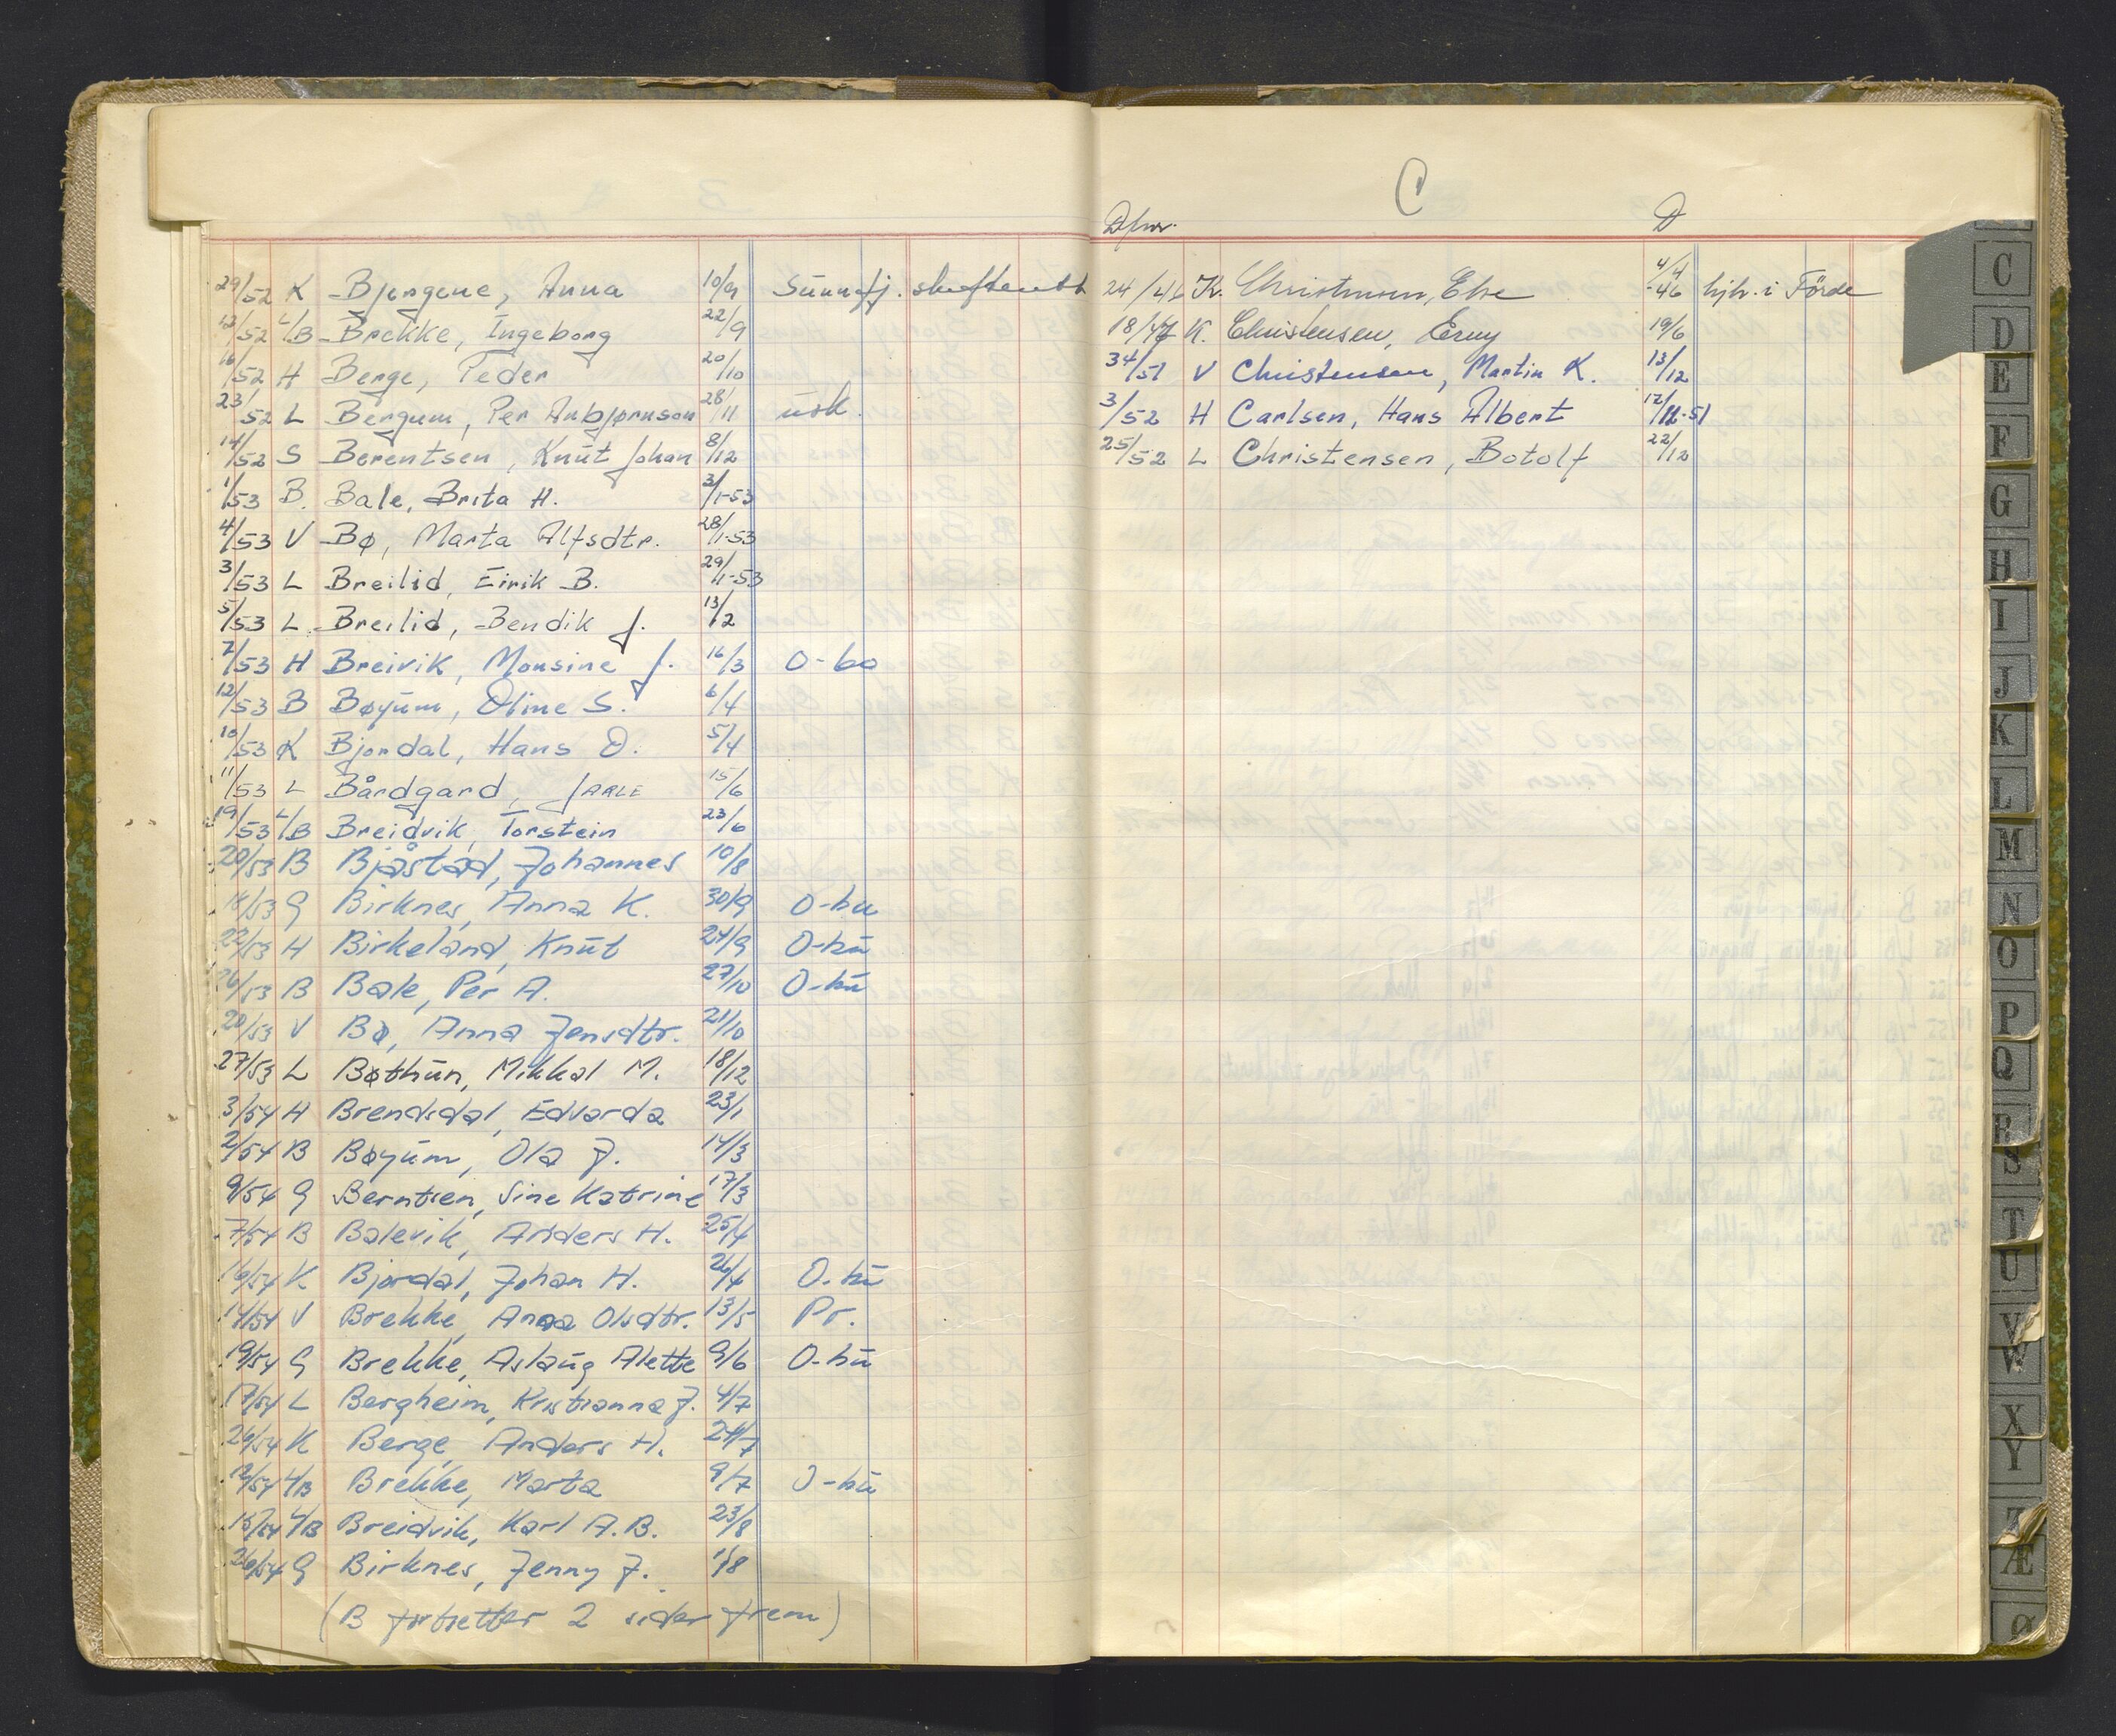 29/52 K Bjergene, Anna 10/9 Sunnfj. skifterett
12/52 L/B Brekke, Ingeborg 22/9
16/52 H Berge, Peder 20/10
23/52 L Bergum, Per Anbjørnson 28/11 usk.
14/52 S Berentsen, Knut Johan 8/12
1/53 B. Bale, Brita H. 3/1-53
4/53 V Bø, Marta Alfsdtr. 28/1-53
3/53 L Breilid, Eirik B. 29/1-53
5/53 L Breilid, Bendik J. 13/2
7/53 H Breivik, Monsine J. 16/3 O-bo
12/53 B Bøyum, Oline S. 6/4
10/53 K Bjordal, Hans O. 5/4
11/53 L Bårdgard, Jarle 15/6
19/53 L/B Breidvik, Torstein 23/6
20/53 B Bjåstad, Johannes 10/8
18/53 G Birknes, Anna K. 30/9 O-bu
22/53 H Birkeland, Knut 24/9 O-bu
26/53 B Bale, Per A. 27/10 O-bu
20/53 V Bø, Anna Jensdtr. 21/10
27/53 L Bøthun, Mikkal M. 18/12
3/54 H Brendsdal, Edvarda 23/1
2/54 B Bøyum, Ola J. 14/3
9/54 G Berntsen, Sine Katrine 17/3
7/54 B Balevik, Anders H. 25/4
16/54 K Bjordal, Johan H. 26/4 O-bu
14/54 V Brekke, Anna Olsdtr. 13/5 Pr.
19/54 G Brekke, Aslaug Alette 9/6 O-bu
17/54 L Bergheim, Kristianna J. 4/7
26/54 K Berge, Anders H. 24/7
12/54 L/B Brekke, Marta 9/7 O-bu
15/54 L/B Breidvik, Karl A.B. 23/8
26/54 G Birknes, Jenny J. 1/8
(B fortsetter 2 sider frem)
C
D
24/46 K. Christensen, Else 4/4-46 hjh. i Förde
18/47 K. Christensen, Erny 19/6
34/51 V Christensen, Martin K. 13/12
3/52 H Carlsen, Hans Albert 12/12-51
25/52 L Christensen, Botolf 22/12
C
D
E
F
G
H
I
J
K
L
M
N
O
P
Q
R
S
T
U
V
W
X
Y
Z
Æ
Ø